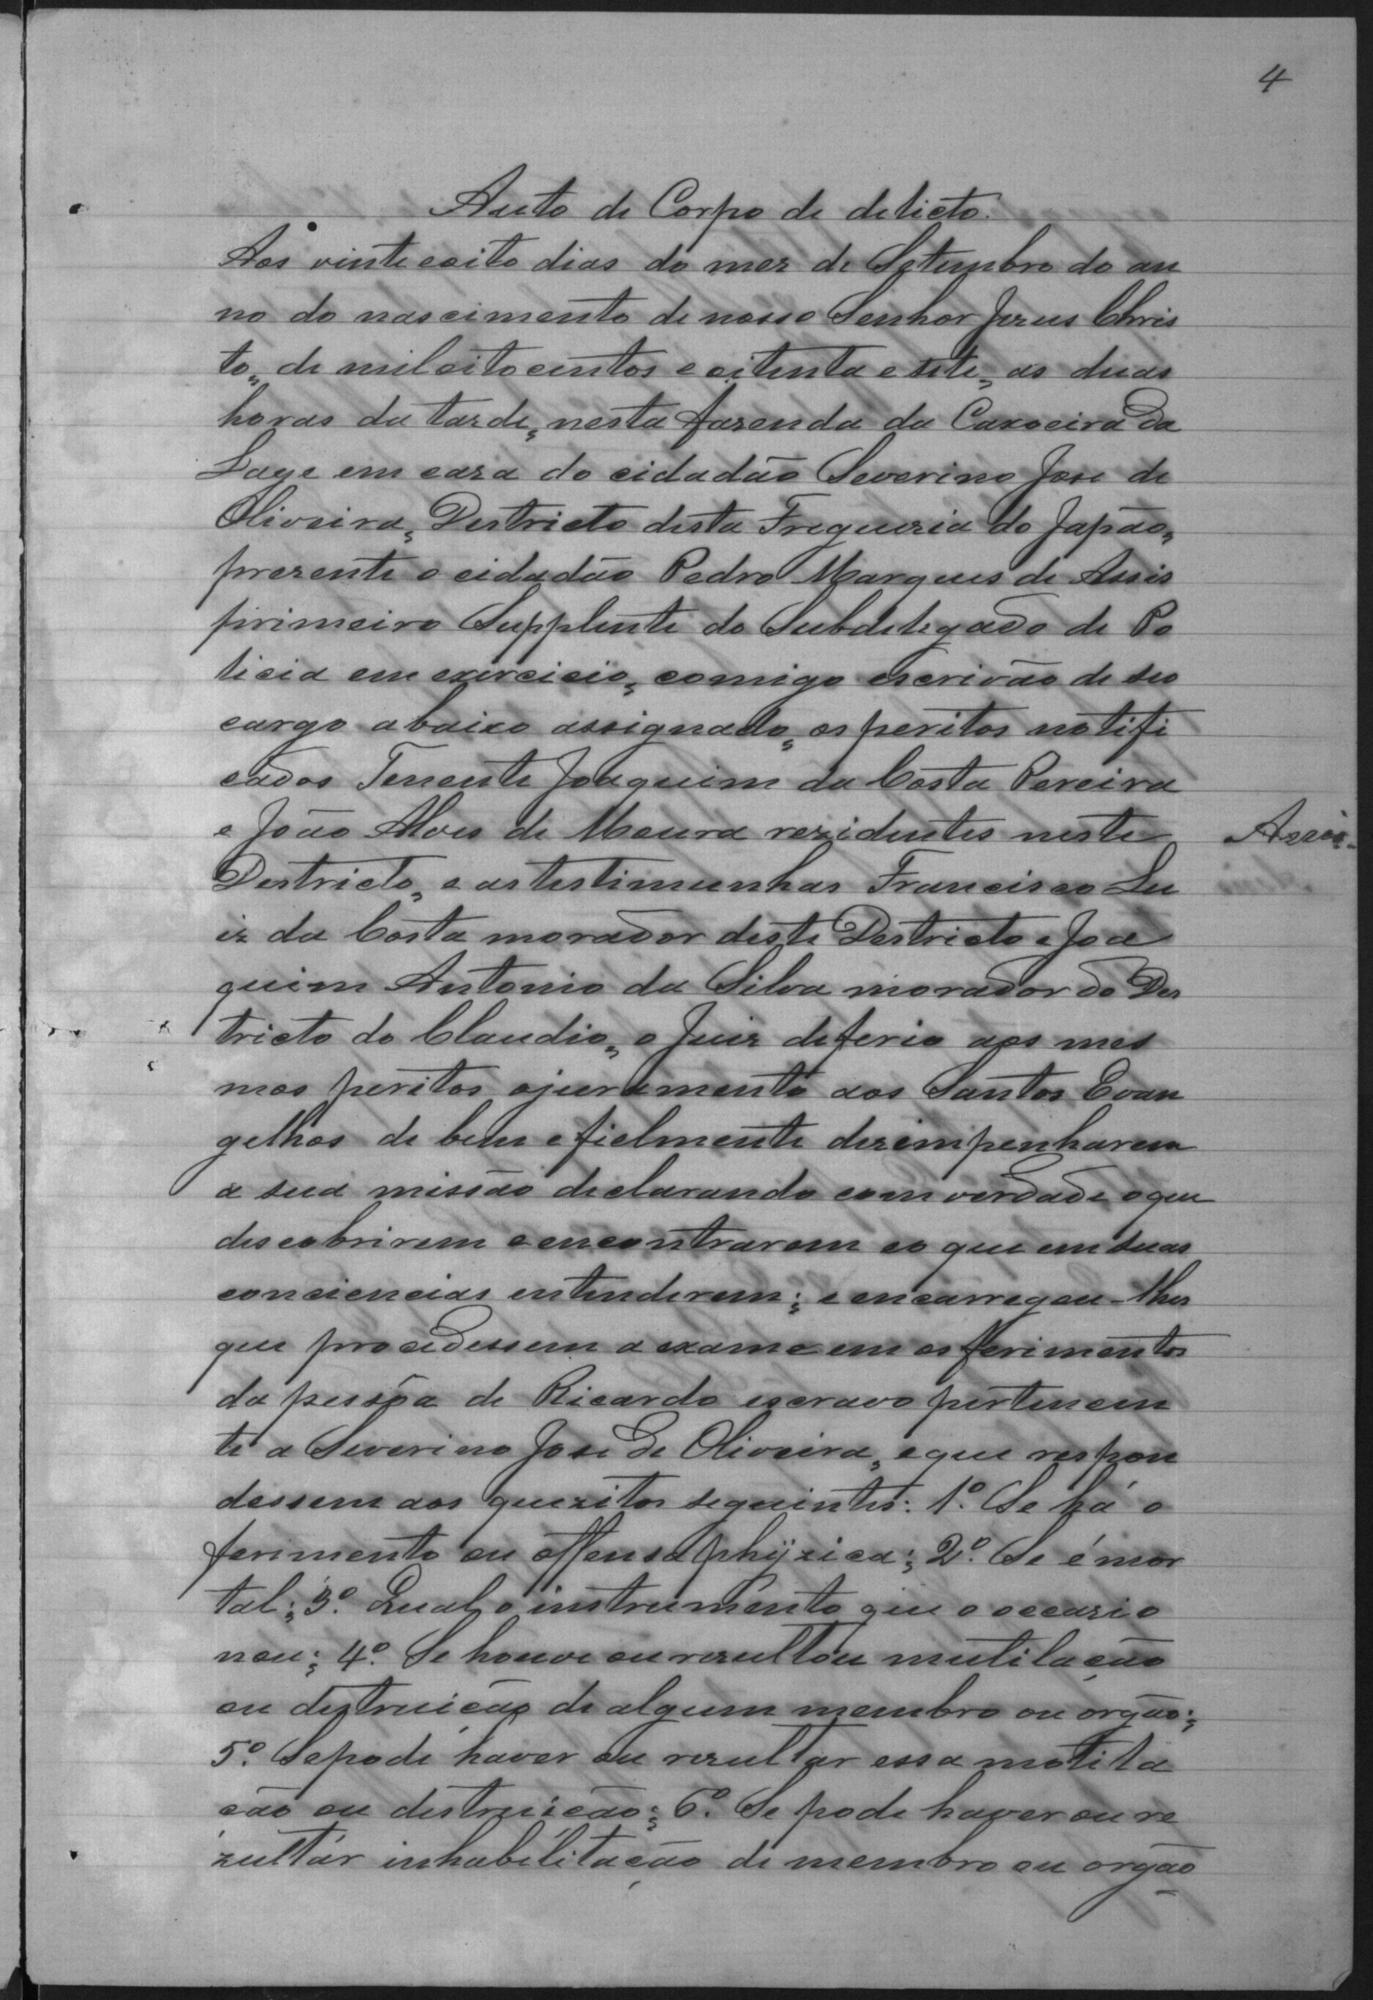 4
Auto de Corpo de delicto.
Aos vinte eoito dias do mez de Setembro do an
no do nascimento de nosso Senhor Jezus Chris
to, de mil eoitocentos e oitenta e sete, as duas
horas da tarde, nesta fazenda da Caxoeira da
Lage em caza do cidadão Severino Jose de
Oliveira, Destricto desta Freguezia do Japão,
prezente o cidadão Pedro Marques de Assis
primeiro Supplente do Subdelegado de Po
licia em exercicio, comigo escrivão de seo
cargo abaixo assignado, os peritos notifi
cados Tenente Joaquim da Costa Pereira
e João Alves de Moura rezidentes neste
Destricto, e as testimunhas Francisco Lu
iz da Costa morador deste Destricto e Joa
quim Antonio da Silva morador do Des
tricto do Claudio, o Juiz deferio aos mes
mos peritos ojuramento aos Santos Evan
gelhos de bem e fielmente dezimpenharem
a sua missão declarando com verdade oque
descobrirem e encontrarem eo que em suas
conciencias entenderem; e encarregou-lhes
que procedessem a exame em os ferimentos
da pessôa de Ricardo escravo pertencen
te a Severino Jose de Oliveira, e que respon
dessem aos quezitos seguintes: 1º. Se há o
ferimento ou offensa phÿzica; 2º. Se é mor
tal; 3º. Qual o instrumento que o occazio
nou; 4º. Se houve ou rezultou mutilação
ou destruição de algum membro ou orgão;
5º. Se pode haver ou rezultar essa motila
ção ou destruição; 6º. Se pode haver ou re
zultar inhabilitação de membro ou orgão